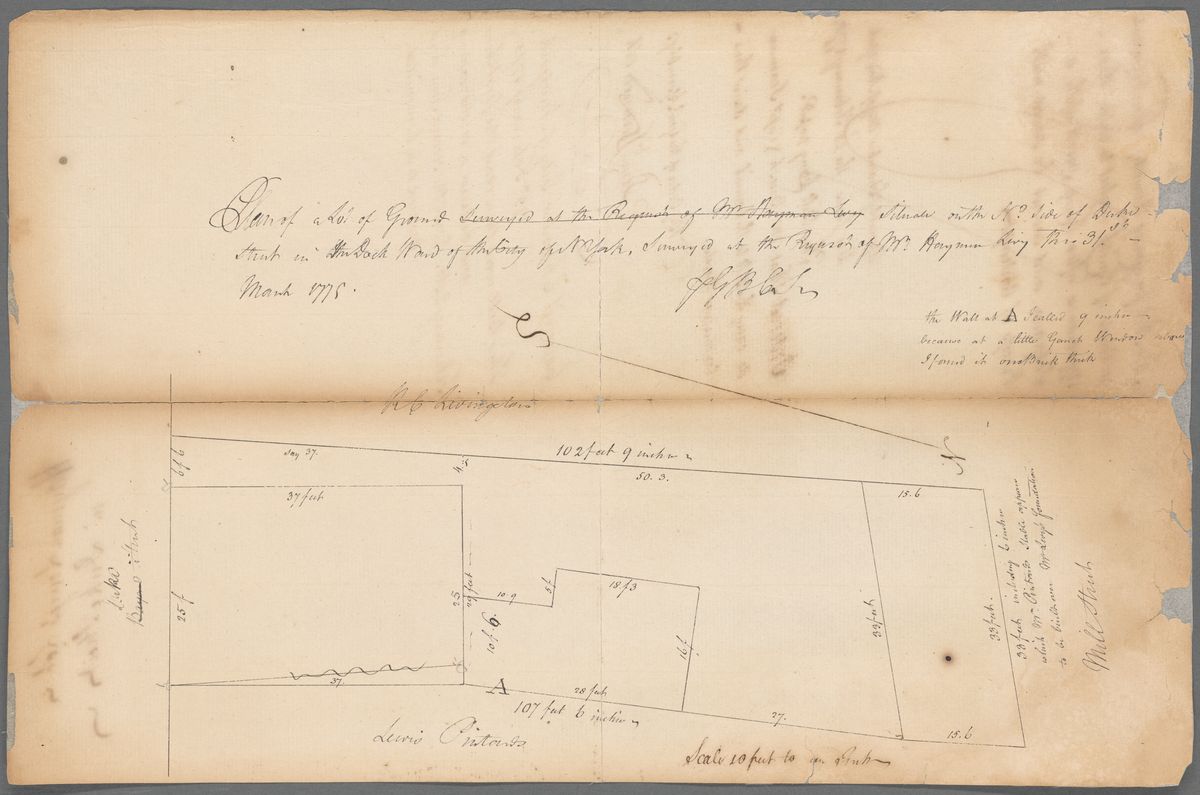 Plan of a Lot of Ground Surveyed at the Request of Mr. Hayman Levy Situate on the No. Side of Duke
Street in the Dock Ward of the City of N York, Surveyed at the Request of Mr. Hayman Levy this 31st
March 1775.
the Wall at A I called 9 inches
because at a little Garret Window above
I found it one Brick thick
S
N
R C Livingston
102 feet 9 inches
say 37.
50. 3.
15.6
6 f 6
4.
37 feet
25 f
25
29 feet
10.9
5 f
18 f 3
10 f. 6.
16 f
33 feet.
33 feet.
33 feet including 6 inches
which Mr. Pintards Stable appears
to be built over Mr Levys foundation
Mill Street
Duke Street
37.
A
28 feet
107 feet 6 inches
27.
15.6
Lewis Pintards
Scale 10 feet to an Inch